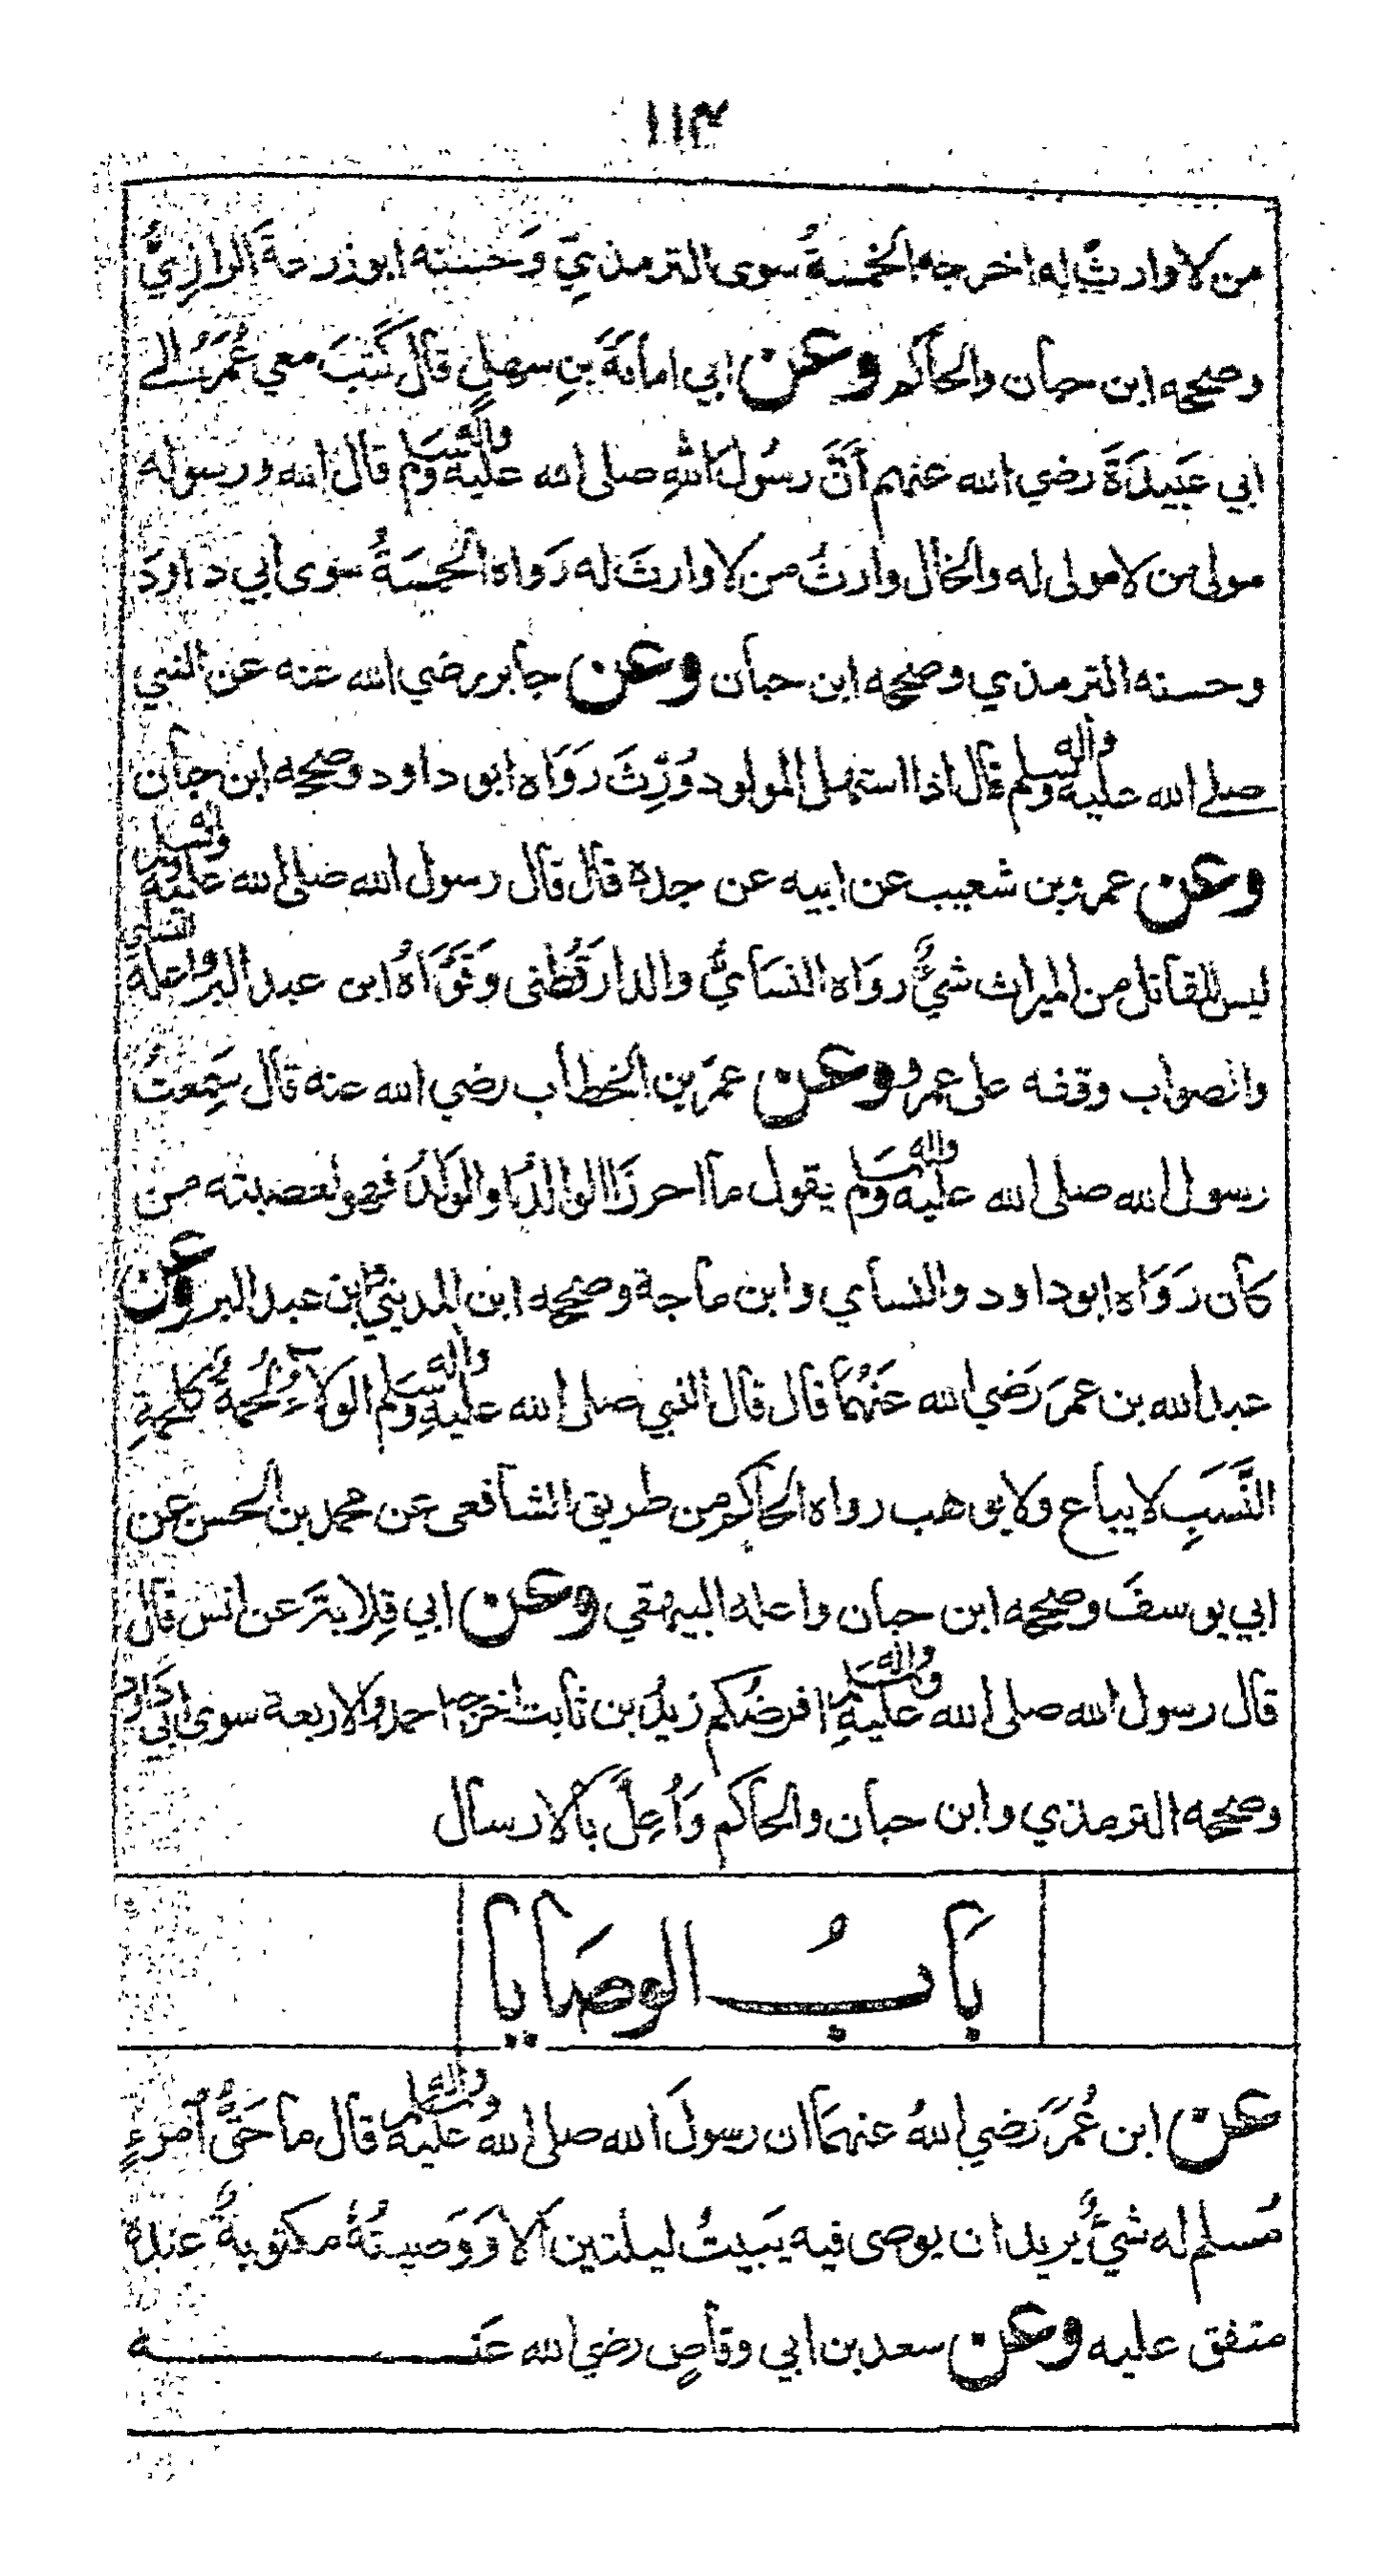 ١١٣
من لا وارثَ له اخرجه الخمسةُ سوى الترمذيّ وَحسنه ابوذرعةَ الرازِيُّ
وصححه ابن حبان والحاكم وعن ابي امامةَ بنِ سهلٍ قال كَتَبَ معي عُمَرُ الى
ابي عَبيدَةَ رضي الله عنهم اَنَّ رسُولَ اللهِ صلى الله عليه واله وسلم قال الله ورسوله
مولى من لا مولى له والخال وارثُ من لا وارثَ له رَوَاه الخمسَةُ سوى ابي داودَ
وحسنه الترمذي وصححه ابن حبان وعن جابر رضي الله عنه عن النبي
صلے الله عليه واله وسلم قال اذا استهل المولود وُرِّثَ رَوَاه ابو داود وصححه ابن حبان
وعن عمرو بن شعيب عن ابيه عن جده قال قال رسول الله صلى الله عليه واله وسلم
ليس للقاتل من الميراث شيءٌ رواه النسَائيُّ والدارقُطنى وَقَوَّاهُ ابن عبد البر واعله النسائي
والصواب وقفه على عمرو وعن عمرَ بن الخطاب رضي الله عنه قال سَمِعتُ
رسول الله صلى الله عليه واله وسلم يقول ما احرزَ الوالدُ او الولَدُ فهو لعصبته من
كان رَوَاه ابوداود والنسائي وابن ماجة وصححه ابن المدينيّ وابن عبد البر وعن
عبد الله بن عمرَ رَضي الله عَنهُمَا قال قال النبي صلى الله عليهِ واله وسلم الولاءُ لُحمةٌ كلحمةِ
النَّسَبِ لا يباع ولا يوهب رواه الحاكم من طريق الشافعى عن محمد بن الحسن عن
ابي يوسفَ وصححه ابن حبان واعله البيهقي وعن ابي قِلابةَ عن انس قال
قال رسول الله صلى الله عليهِ واله وسلم افرضُكم زيدُ بن ثابت اخرجه احمد والاربعة سوى ابي داود
وصححه الترمذي وابن حبان والحاكم وَاُعِلَّ بالارسال
بَابُ الوصَايا
عن ابن عُمَرَ رَضي اللهُ عنهمَا ان رسولَ الله صلى اللهُ عليه واله وسلم قال ما حَقُّ امْرءٍ
مُسلم له شيءٌ يريد ان يوصى فيه يَبيتُ ليلتين اَلا وَوَصيتُهُ مكتوبةٌ عندهُ
متفق عليه وعن سعد بن ابي وقاصٍ رضي الله عَنه